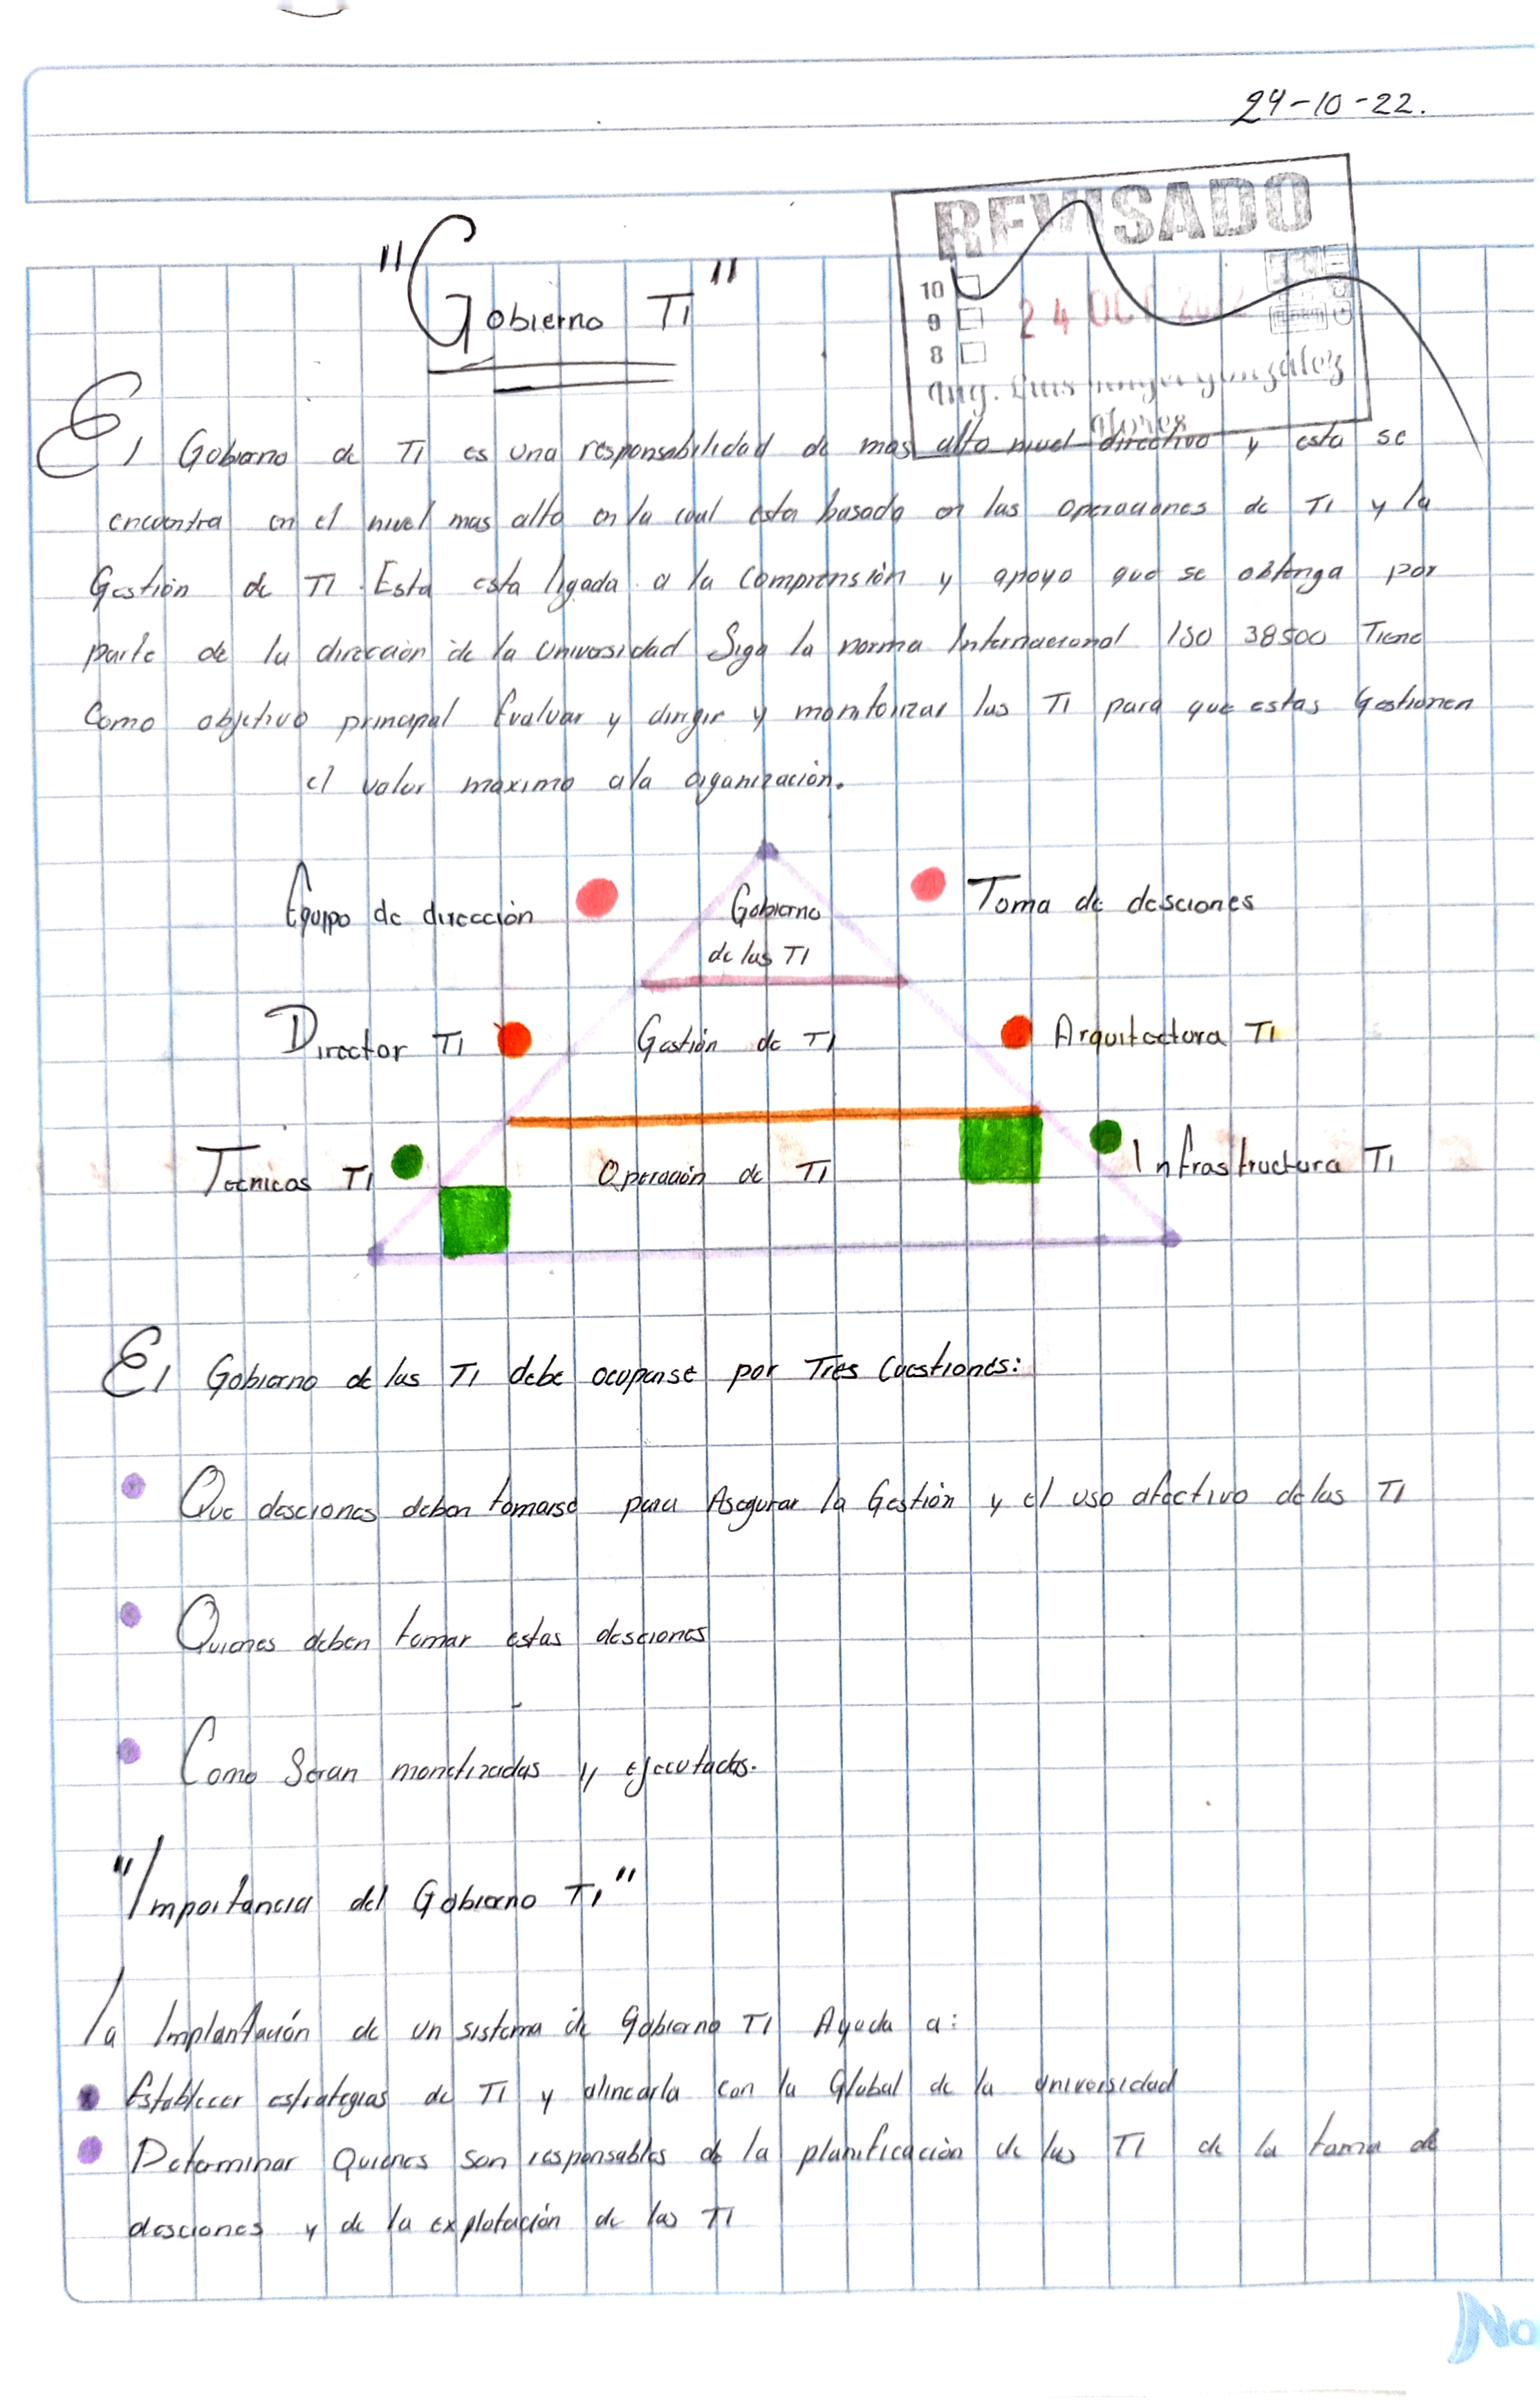 24-10-22.
REVISADO
10
9
8
24 OCT 2022
Ing. Luis González
Flores
"Gobierno TI"
El Gobierno de TI es una responsabilidad de mas alto nivel directivo y esta se
encuentra en el nivel mas alto en la cual esta basado en las operaciones de TI y la
Gestión de TI. Esta esta ligada a la Comprensión y apoyo que se obtenga por
parte de la dirección de la universidad Siga la norma Internacional ISO 38500 Tiene
Como objetivo principal Evaluar y dirigir y monitorizar las TI para que estas Gestionen
el valor maximo a la organización.
Equipo de dirección Gobierno Toma de desciones
de las TI
Director TI Gestión de TI Arquitectura TI
Tecnicos TI Operación de TI Infrastructura TI
El Gobierno de las TI debe ocuparse por Tres Cuestiones:
Que desciones deben tomarse para Asegurar la Gestión y el uso afectivo de las TI
Quienes deben tomar estas desciones
Como Seran monetizadas y ejecutadas.
"Importancia del Gobierno TI"
la Implantación de un sistema de Gobierno TI Ayuda a:
Establecer estrategias de TI y alinearla con la Global de la universidad
Determinar Quienes son responsables de la planificación de las TI de la toma de
desciones y de la explotación de las TI
No